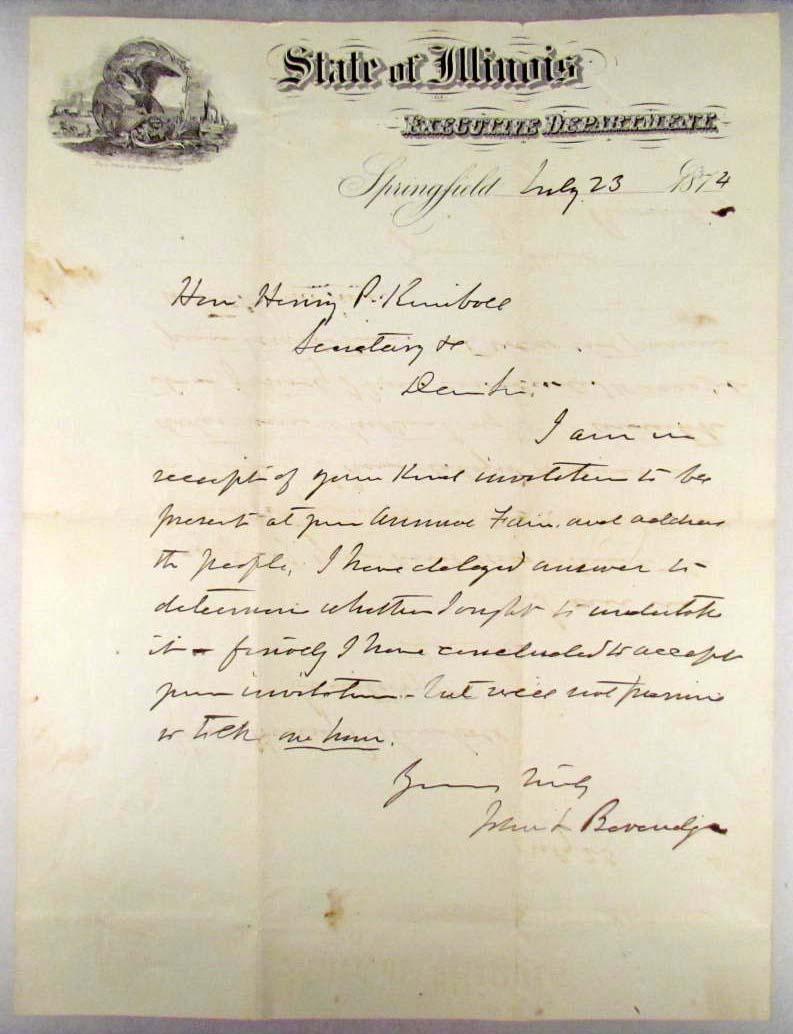 State of Illinois
EXECUTIVE DEPARTMENT.
Springfield July 23 1874
Hon Henry P. Kimball
Secretary &c
Dear Sir.
I am in
receipt of your kind invitation to be
present at your Annual Fair and address
the people, I have delayed answer to
determine whether I ought to undertake
it - finally I have concluded to accept
your invitation - but will not promise
to talk one hour.
Yours truly
John L Beveridge